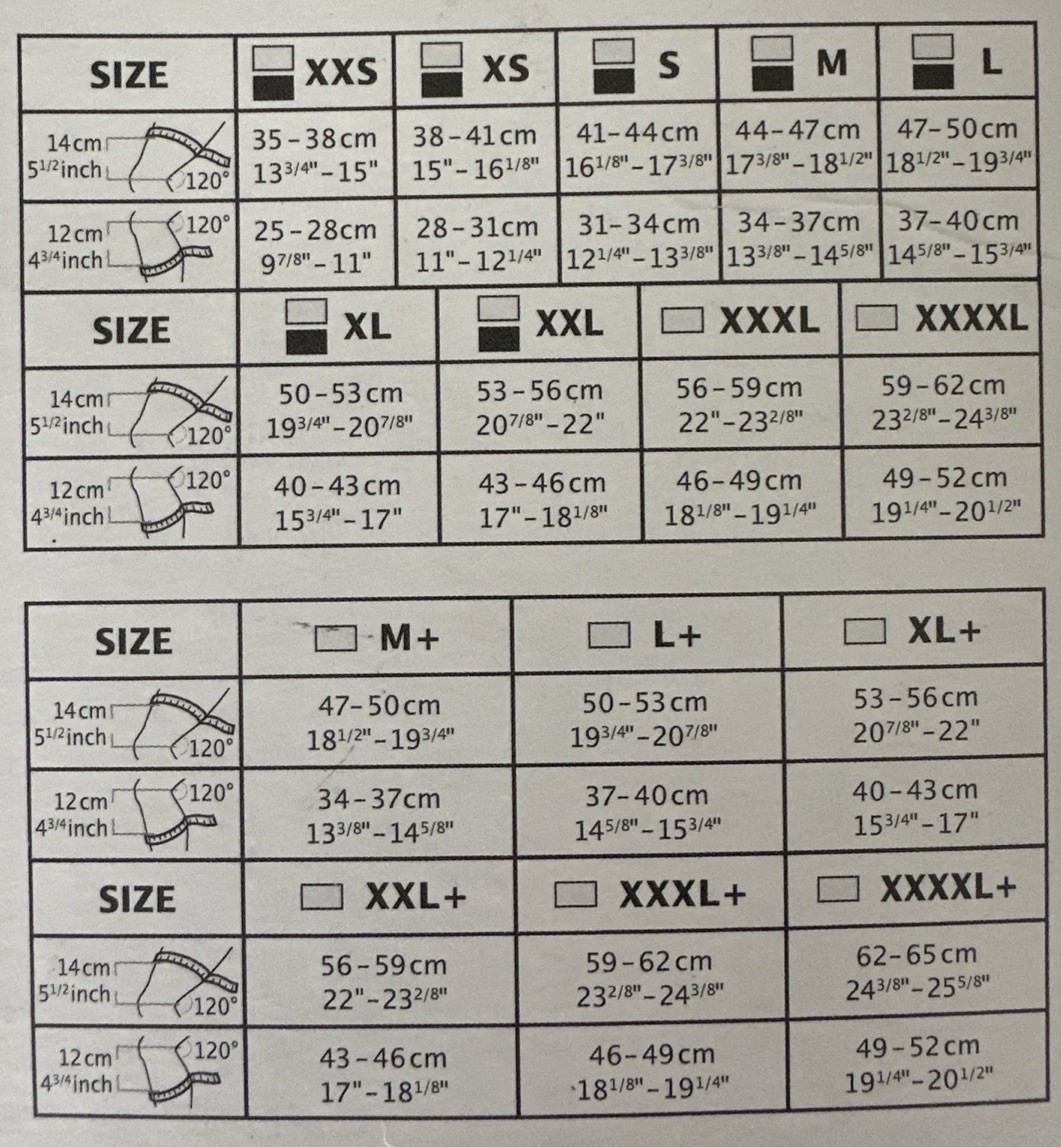 SIZE XXS XS S M L
14cm 35–38cm 38–41cm 41–44cm 44–47cm 47–50cm
5 1/2 inch 120° 13 3/4"–15" 15"–16 1/8" 16 1/8"–17 3/8" 17 3/8"–18 1/2" 18 1/2"–19 3/4"
12cm 120° 25–28cm 28–31cm 31–34cm 34–37cm 37–40cm
4 3/4 inch 9 7/8"–11" 11"–12 1/4" 12 1/4"–13 3/8" 13 3/8"–14 5/8" 14 5/8"–15 3/4"
SIZE XL XXL XXXL XXXXL
14cm 50–53cm 53–56cm 56–59cm 59–62cm
5 1/2 inch 120° 19 3/4"–20 7/8" 20 7/8"–22" 22"–23 2/8" 23 2/8"–24 3/8"
12cm 120° 40–43cm 43–46cm 46–49cm 49–52cm
4 3/4 inch 15 3/4"–17" 17"–18 1/8" 18 1/8"–19 1/4" 19 1/4"–20 1/2"
SIZE M+ L+ XL+
14cm 47–50cm 50–53cm 53–56cm
5 1/2 inch 120° 18 1/2"–19 3/4" 19 3/4"–20 7/8" 20 7/8"–22"
12cm 120° 34–37cm 37–40cm 40–43cm
4 3/4 inch 13 3/8"–14 5/8" 14 5/8"–15 3/4" 15 3/4"–17"
SIZE XXL+ XXXL+ XXXXL+
14cm 56–59cm 59–62cm 62–65cm
5 1/2 inch 120° 22"–23 2/8" 23 2/8"–24 3/8" 24 3/8"–25 5/8"
12cm 120° 43–46cm 46–49cm 49–52cm
4 3/4 inch 17"–18 1/8" 18 1/8"–19 1/4" 19 1/4"–20 1/2"